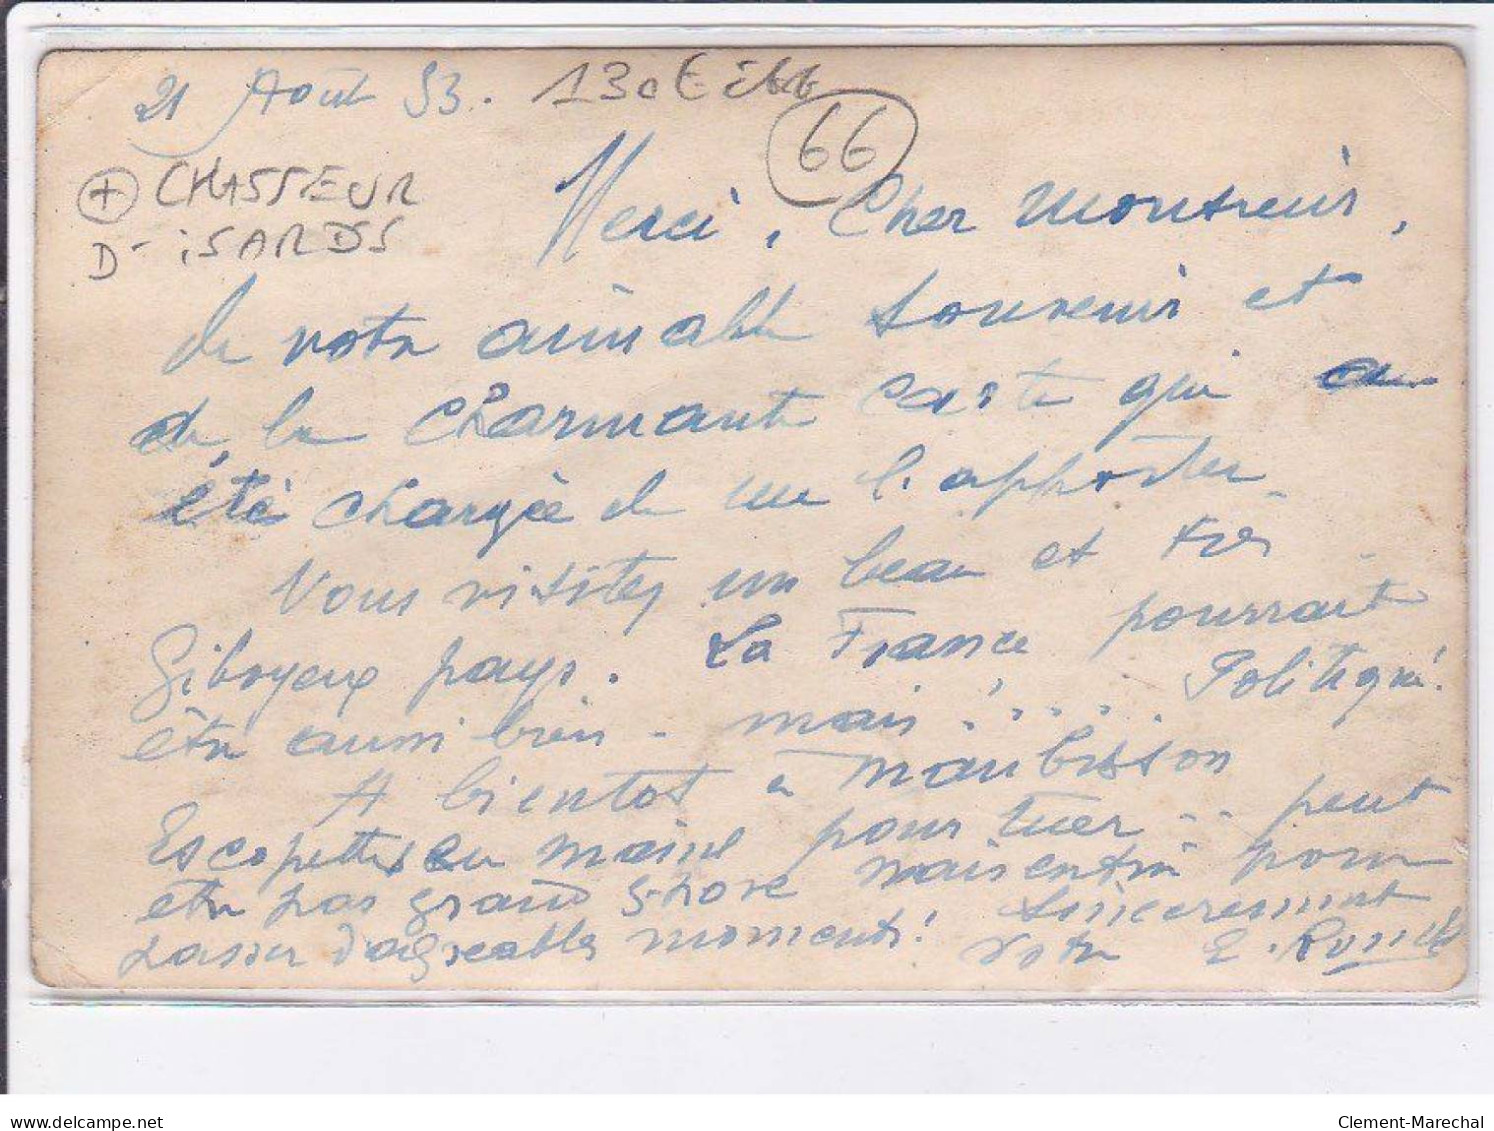 21 Août 53. 130€
66
+ CHASSEUR
D'ISARDS
Merci, Cher Monsieur,
de votre aimable souvenir et
de la charmante carte qui a
été chargée de me l'apporter.
Vous visitez un beau et très
Giboyeux pays. La France pourrait
être aussi bien - mais ..... Politique!
A bientot à Maubisson
Escopettes en mains pour tuer .. peut
être pas grand chose mais enfin pour
passer d'agreables moments! Sincerement
votre E.
delcampe.net
Clement-Marechal